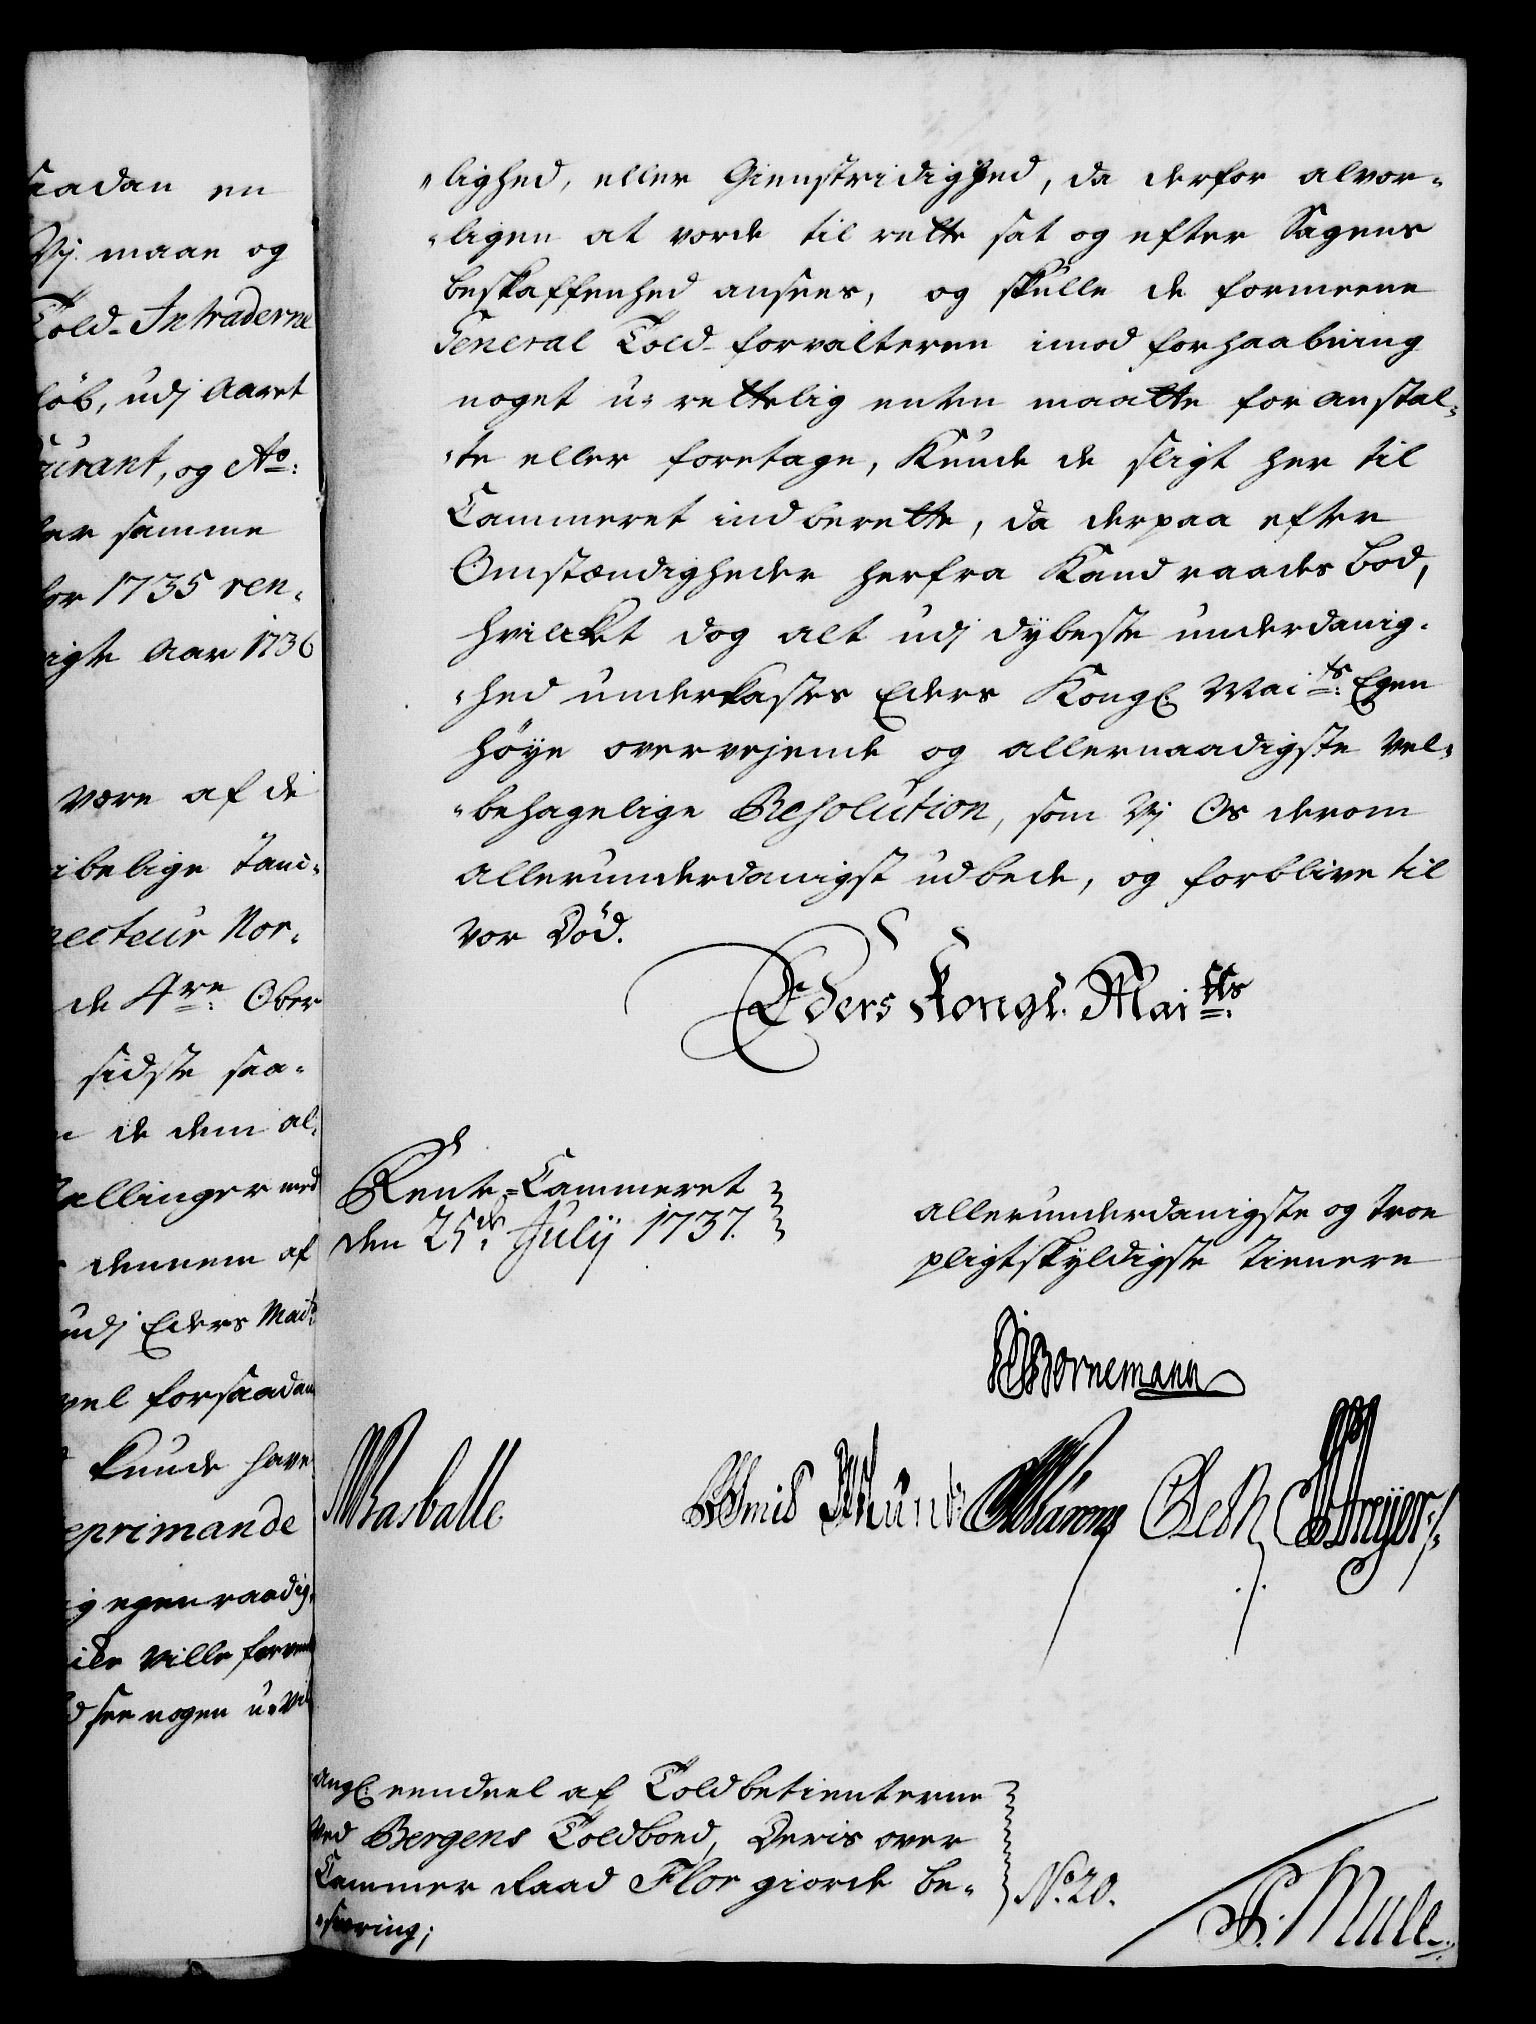 saadan en
Vj maae og
Told-Intraderne
löb, udj Aaret
Courant, og Ao:
samme
for 1735 ren-
Aar 1736
være af de
belige Tani-
recteur Nor-
de 4re: Ober
sidste saa-
de dem al-
med
dennem af
udj Eders Maits
vel forsaadan
kunde have
reprimande
egenraadig-
ville
see nogen u-vil
"lighed, eller Gienstridighed, da derfor alvor-
"ligen at vorde til rette sat og efter Sagens
beskaffenhed ansees, og skulle de formeene
General Told-forvalteren imod forhaabning
noget u-rettelig enten maatte foranstal-
"te eller foretage, Kunde de sligt her til
Cammeret indberette, da derpaa efter
Omstændigheder herfra Kand raades bod,
hvilcket dog alt udj dybeste underdanig-
"hed underkastes Eders Kongl. Maits: Egen
höye overvejende og allernaadigste vel-
"behagelige Resolution, som Vj Os derom
allerunderdanigst udbede, og forblive til
vor Död.
Eders Kongl. Maits:
Rente-Cammeret
den 25de Julij 1737.
allerunderdanigste og troe
pligtskyldigste tienere
Bornemann
Basballe Smid Munk Oeth
angl. eendeel af Toldbetienterne
ved Bergens Toldboed, Deris over
Cammer Raad Flor giorde be-
"sværing;
No. 20.
Mule